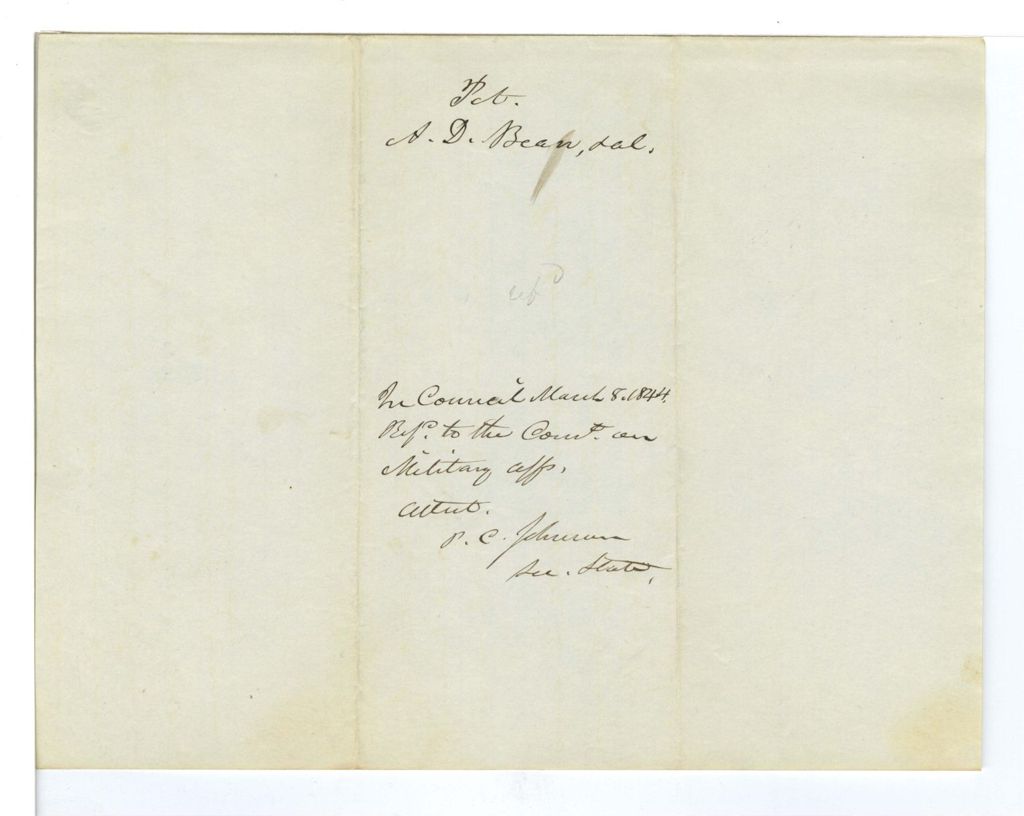 Pet.
A. D. Bean, & al.
In Council March 8. 1844.
Refd. to the Comt. on
Military affs.
Attest.
P. C. Johnson
Sec. State,